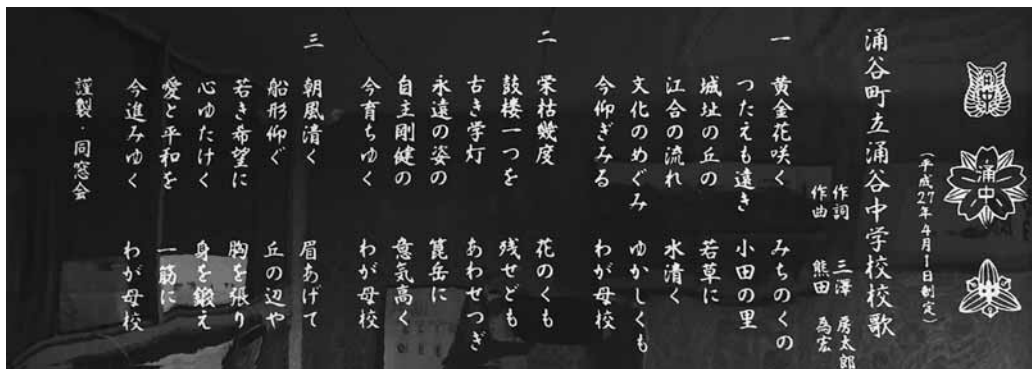 涌谷町立涌谷中学校校歌
(平成27年4月1日制定)
作詞 三澤 房太郎
作曲 熊田 為宏
一 黄金花咲く みちのくの
つたえも遠き 小田の里
城址の丘の 若草に
江合の流れ 水清く
文化のめぐみ ゆかしくも
今仰ぎみる わが母校
二 栄枯幾度 花のくも
鼓楼一つを 残せども
古き学灯 あわせつぎ
永遠の姿の 箆岳に
自主剛健の 意気高く
今育ちゆく わが母校
三 朝風清く 眉あげて
船形仰ぐ 丘の辺や
若き希望に 胸を張り
心ゆたけく 身を鍛え
愛と平和を 一筋に
今進みゆく わが母校
謹製・同窓会
涌中
中